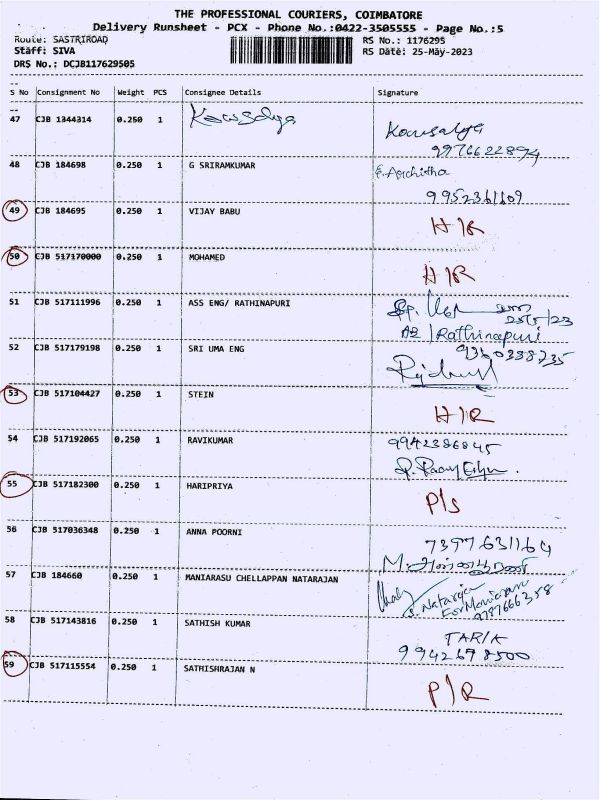 THE PROFESSIONAL COURIERS, COIMBATORE
Delivery Runsheet - PCX - Phone No.:0422-3505555 - Page No.:5
Route: SASTRIROAD RS No.: 1176295
Staff: SIVA RS Date: 25-May-2023
DRS No.: DCJB117629505
S No Consignment No Weight PCS Consignee Details Signature
47 CJB 1344314 0.250 1 Kowsalya Kowsalya
9976622894
48 CJB 184698 0.250 1 G SRIRAMKUMAR E. Architha
9952361109
49 CJB 184695 0.250 1 VIJAY BABU H/R
50 CJB 517170000 0.250 1 MOHAMED H/R
51 CJB 517111996 0.250 1 ASS ENG/ RATHINAPURI
25/5/23
AE/Rathinapuri
52 CJB 517179198 0.250 1 SRI UMA ENG 9360388735
53 CJB 517104427 0.250 1 STEIN H/R
54 CJB 517192065 0.250 1 RAVIKUMAR 9942386845
55 CJB 517182300 0.250 1 HARIPRIYA P/S
56 CJB 517036348 0.250 1 ANNA POORNI 7397631164
M. அன்னபூரணி
57 CJB 184660 0.250 1 MANIARASU CHELLAPPAN NATARAJAN
S. Nataraja
For Maniarasu
58 CJB 517143816 0.250 1 SATHISH KUMAR TARIA
9942698500
59 CJB 517115554 0.250 1 SATHISHRAJAN N P/R